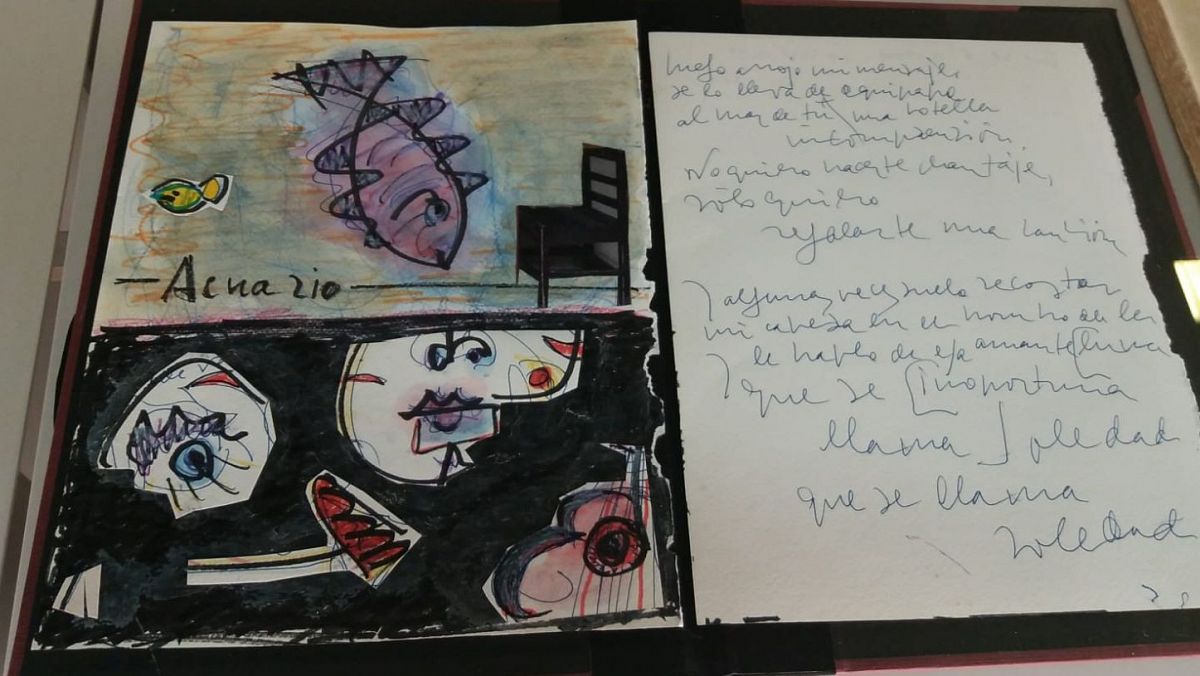 Acuario
luego arrojo mi mensaje,
se lo lleva de equipaje
al mar de tu una botella
incomprensión.
No quiero hacerte chantaje,
sólo quiero
regalarte una canción
Y algunas veces suelo recostar
mi cabeza en el hombro de la
le hablo de esa amante luna
Y que se inoportuna
llama Soledad
que se llama
Soledad